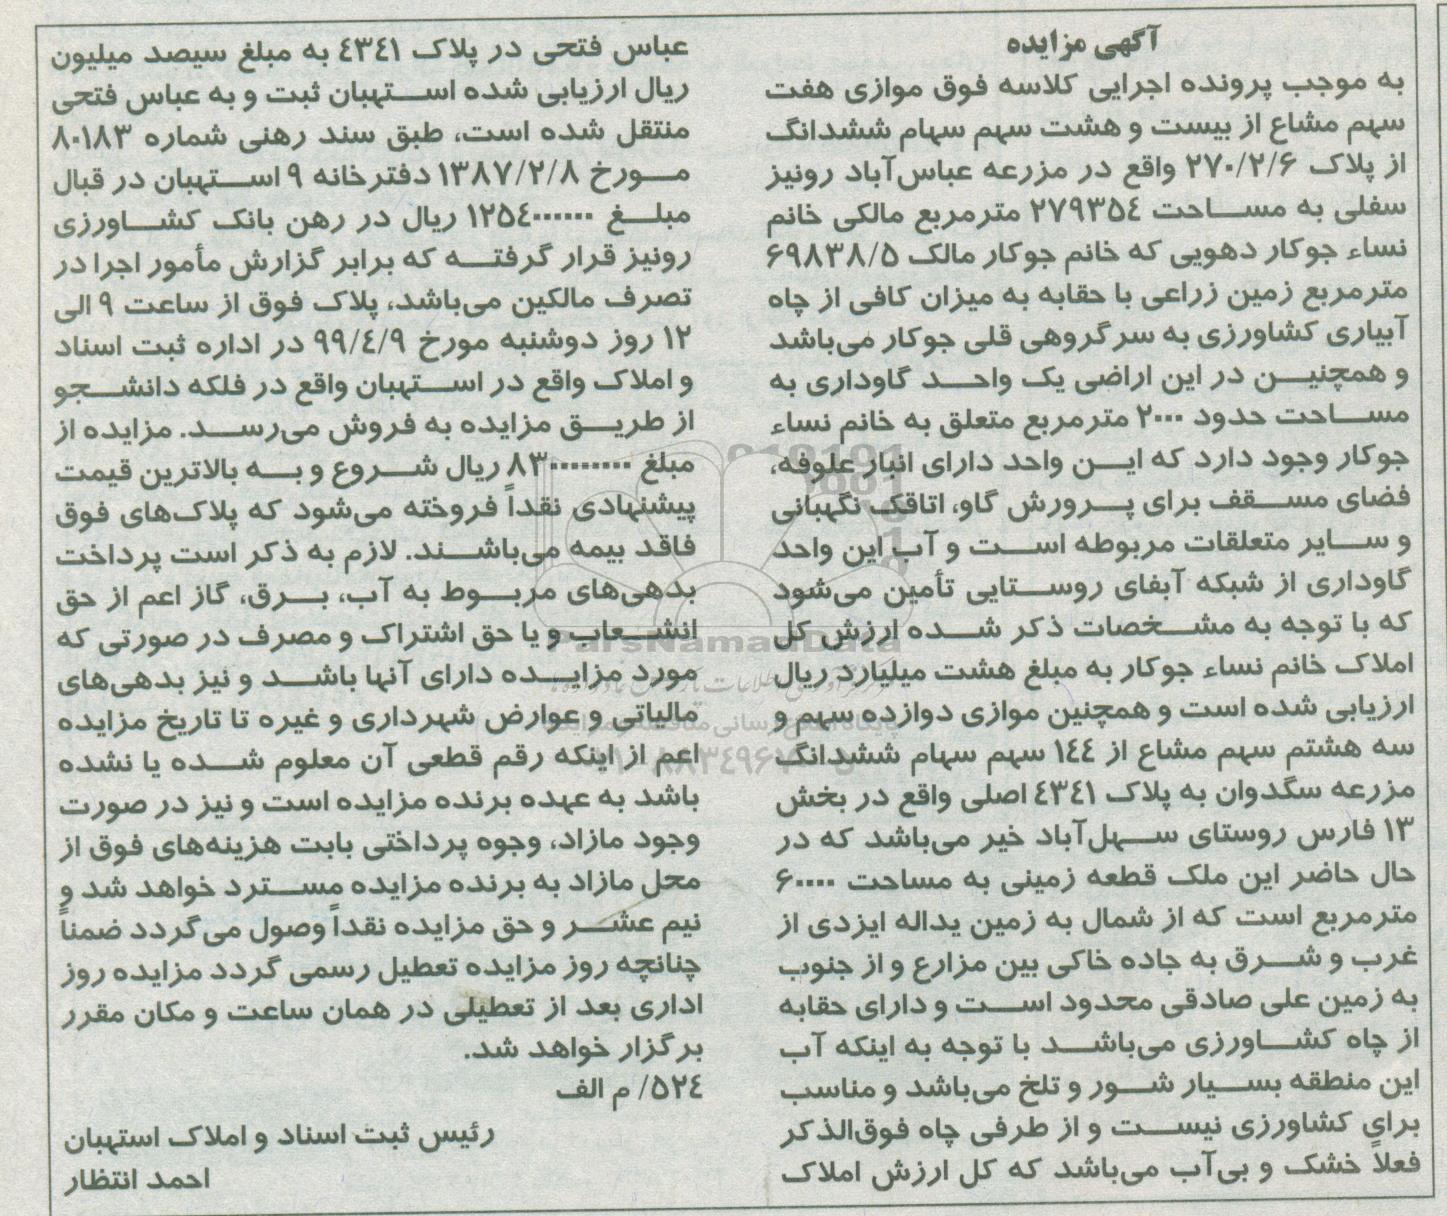 آگهی مزایده
به موجب پرونده اجرایی کلاسه فوق موازی هفت
سهم مشاع از بیست و هشت سهم سهام ششدانگ
از پلاک ۲۷۰/۲/۶ واقع در مزرعه عباس‌آباد رونیز
سفلی به مساحت ۲۷۹۳۵۴ مترمربع مالکی خانم
نساء جوکار دهویی که خانم جوکار مالک ۶۹۸۳۸/۵
مترمربع زمین زراعی با حقابه به میزان کافی از چاه
آبیاری کشاورزی به سرگروهی قلی جوکار می‌باشد
و همچنین در این اراضی یک واحد گاوداری به
مساحت حدود ۲۰۰۰ مترمربع متعلق به خانم نساء
جوکار وجود دارد که این واحد دارای انبار علوفه،
فضای مسقف برای پرورش گاو، اتاقک نگهبانی
و سایر متعلقات مربوطه است و آب این واحد
گاوداری از شبکه آبفای روستایی تأمین می‌شود
که با توجه به مشخصات ذکر شده ارزش کل
املاک خانم نساء جوکار به مبلغ هشت میلیارد ریال
ارزیابی شده است و همچنین موازی دوازده سهم و
سه هشتم سهم مشاع از ۱۴۴ سهم سهام ششدانگ
مزرعه سگدوان به پلاک ۴۳۴۱ اصلی واقع در بخش
۱۳ فارس روستای سهل‌آباد خیر می‌باشد که در
حال حاضر این ملک قطعه زمینی به مساحت ۶۰۰۰۰
مترمربع است که از شمال به زمین یداله ایزدی از
غرب و شرق به جاده خاکی بین مزارع و از جنوب
به زمین علی صادقی محدود است و دارای حقابه
از چاه کشاورزی می‌باشد با توجه به اینکه آب
این منطقه بسیار شور و تلخ می‌باشد و مناسب
برای کشاورزی نیست و از طرفی چاه فوق‌الذکر
فعلاً خشک و بی‌آب می‌باشد که کل ارزش املاک
عباس فتحی در پلاک ۴۳۴۱ به مبلغ سیصد میلیون
ریال ارزیابی شده استهبان ثبت و به عباس فتحی
منتقل شده است، طبق سند رهنی شماره ۸۰۱۸۳
مورخ ۱۳۸۷/۲/۸ دفترخانه ۹ استهبان در قبال
مبلغ ۱۲۵۴۰۰۰۰۰۰ ریال در رهن بانک کشاورزی
رونیز قرار گرفته که برابر گزارش مأمور اجرا در
تصرف مالکین می‌باشد، پلاک فوق از ساعت ۹ الی
۱۲ روز دوشنبه مورخ ۹۹/۴/۹ در اداره ثبت اسناد
و املاک واقع در استهبان واقع در فلکه دانشجو
از طریق مزایده به فروش می‌رسد. مزایده از
مبلغ ۸۳۰۰۰۰۰۰۰۰ ریال شروع و به بالاترین قیمت
پیشنهادی نقداً فروخته می‌شود که پلاک‌های فوق
فاقد بیمه می‌باشند. لازم به ذکر است پرداخت
بدهی‌های مربوط به آب، برق، گاز اعم از حق
انشعاب و یا حق اشتراک و مصرف در صورتی که
مورد مزایده دارای آنها باشد و نیز بدهی‌های
مالیاتی و عوارض شهرداری و غیره تا تاریخ مزایده
اعم از اینکه رقم قطعی آن معلوم شده یا نشده
باشد به عهده برنده مزایده است و نیز در صورت
وجود مازاد، وجوه پرداختی بابت هزینه‌های فوق از
محل مازاد به برنده مزایده مسترد خواهد شد و
نیم عشر و حق مزایده نقداً وصول می‌گردد ضمناً
چنانچه روز مزایده تعطیل رسمی گردد مزایده روز
اداری بعد از تعطیلی در همان ساعت و مکان مقرر
برگزار خواهد شد.
۵۲۴/ م الف
رئیس ثبت اسناد و املاک استهبان
احمد انتظار
ParsNamadData